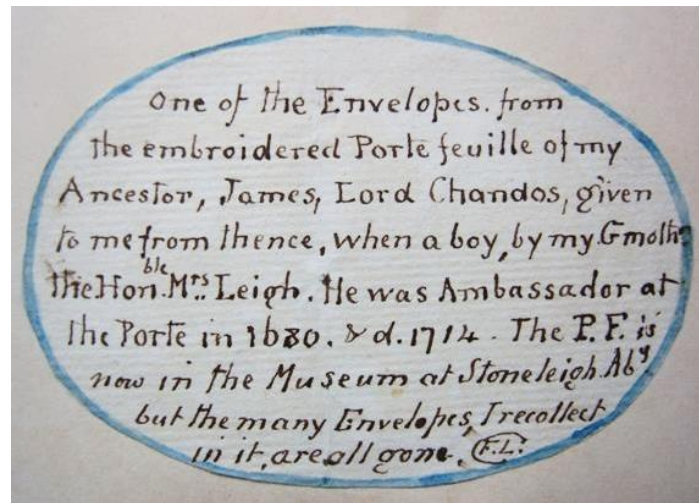 One of the Envelopes. from
the embroidered Porte feuille of my
Ancestor, James, Lord Chandos, given
to me from thence, when a boy, by my Gmoth.
the Hon.ble Mrs. Leigh. He was Ambassador at
the Porte in 1680. & d. 1714. The P.F. is
now in the Museum at Stoneleigh Aby.
but the many Envelopes, I recollect
in it, are all gone. F.L.